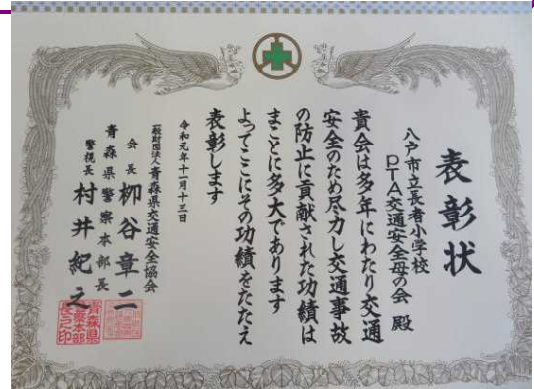 表彰状
八戸市立長者小学校
PTA交通安全母の会 殿
貴会は多年にわたり交通
安全のため尽力し交通事故
の防止に貢献された功績は
まことに多大であります
よってここにその功績をたたえ
表彰します
令和元年十一月十三日
一般財団法人青森県交通安全協会
会長 柳谷章二
青森県警察本部長
警視長 村井紀之
青森県
警察本部
長之印